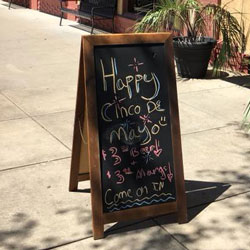 Happy
Cinco DE
Mayo
$3 Beer!
$3
Come on IN